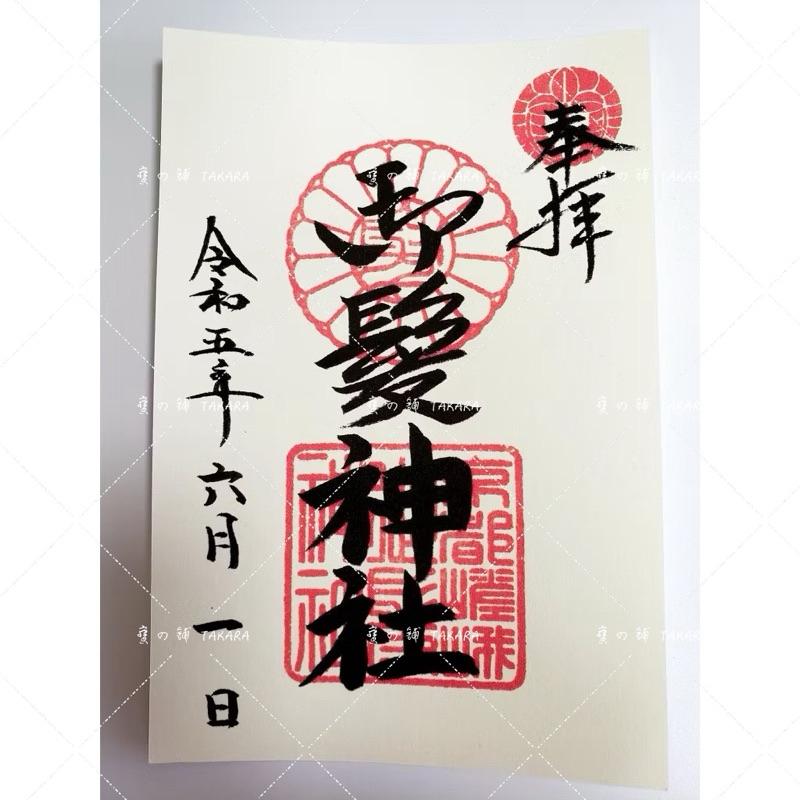 奉拝
御髪神社
令和五年六月一日
寶の舖 TAKARA
寶の舖 TAKARA
寶の舖 TAKARA
寶の舖 TAKARA
寶の舖 TAKARA
寶の舖 TAKARA
寶の舖 TAKARA
寶の舖 TAKARA
寶の舖 TAKARA